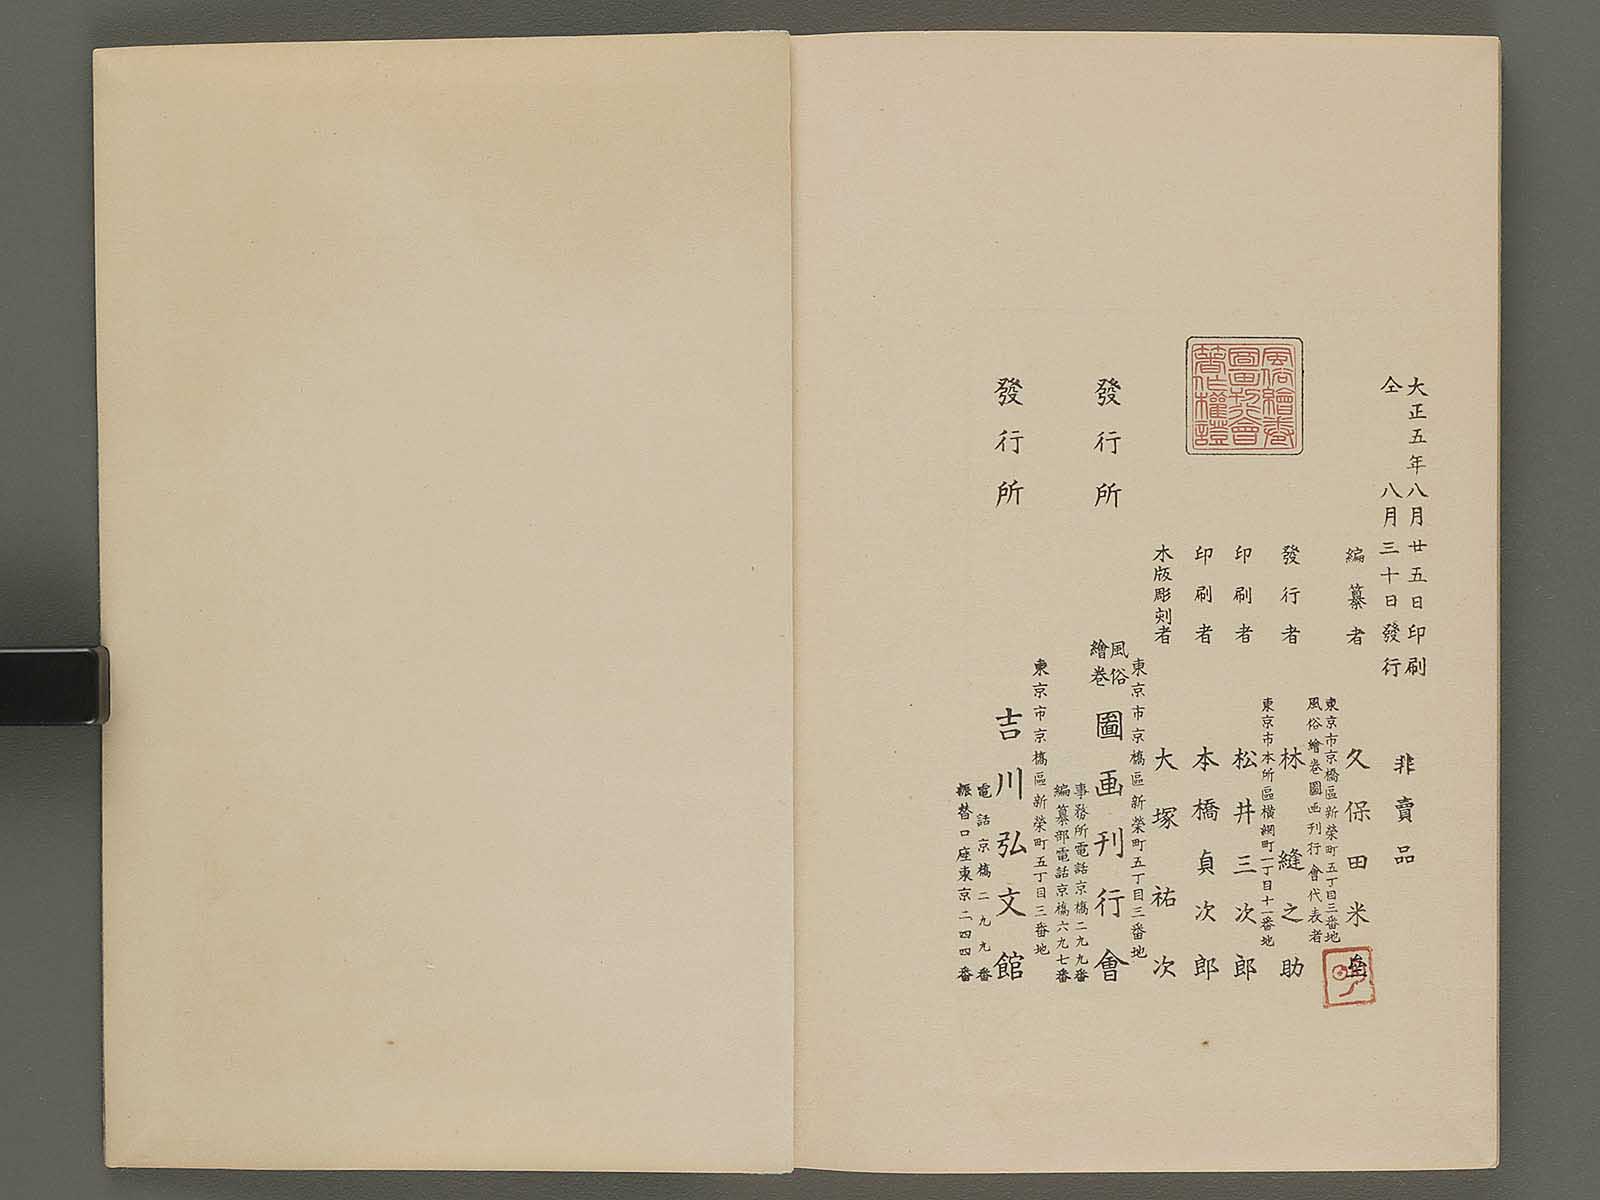 大正五年八月廿五日印刷
仝八月三十日發行
非賣品
編纂者
久保田米
東京市京橋區新榮町五丁目三番地
風俗繪卷圖画刊行會代表者
發行者
林縫之助
東京市本所區横網町一丁目十一番地
印刷者
松井三次郎
印刷者
本橋貞次郎
木版彫刻者
大塚祐次
風俗繪卷圖畫刊行會著作權證
發行所
東京市京橋區新榮町五丁目三番地
風俗繪卷圖画刊行會
事務所電話京橋二九九番
編纂部電話京橋六九七番
發行所
東京市京橋區新榮町五丁目三番地
吉川弘文館
電話京橋二九九番
振替口座東京二四四番